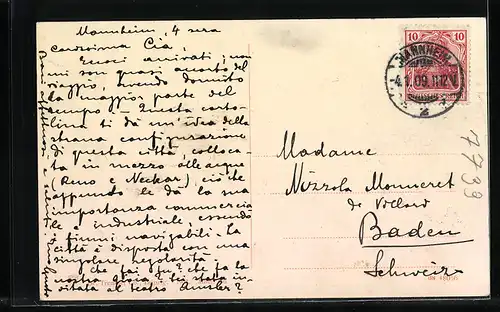 Mannheim, 4 sera
Carissima Cia,
Eccoci arrivati; non
mi son quasi accorto del
viaggio, avendo dormito
la maggior parte del
tempo – Questa carto-
lina ti dà un'idea della
strana configurazione
di questa città colloca-
ta in mezzo alle acque
(Reno e Neckar) ciò che
appunto le dà la sua
importanza commercia-
le e industriale, essendo
i fiumi navigabili. La
città è disposta con una
singolare regolarità.
Che fai tu? che fa la
nostra Gioia? Sei stata in-
vitata al teatro
10 10
MANNHEIM
-4.1.09.11-12V.
2
Madame
Nizzola Monneret
de Villard
Baden
Schweiz
7739